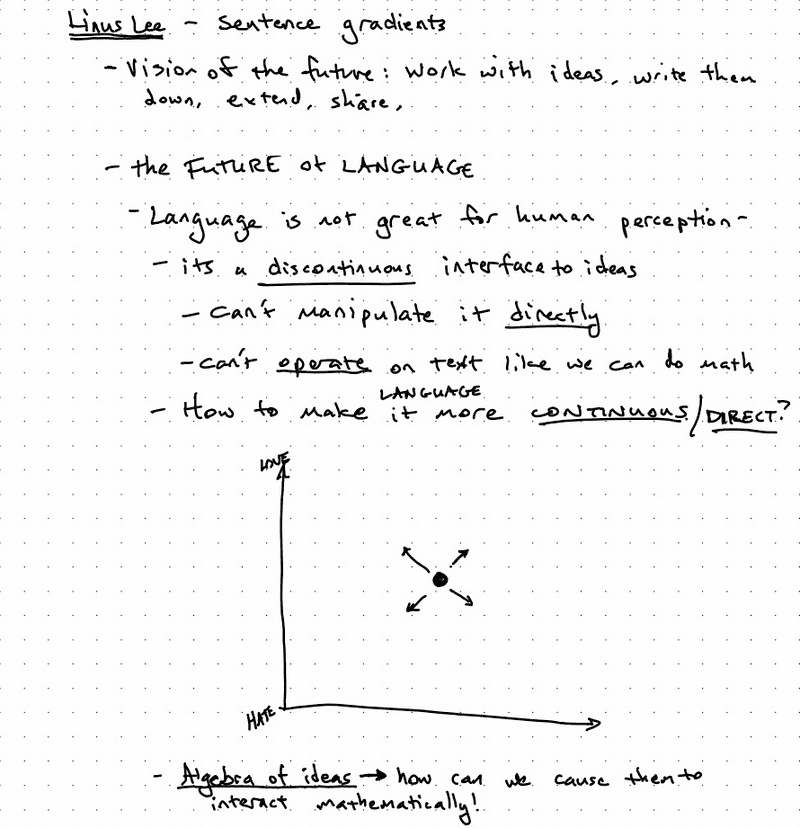 Linus Lee - Sentence gradients
- Vision of the future: work with ideas, write them
down, extend, share,
- the FUTURE of LANGUAGE
- Language is not great for human perception -
- its a discontinuous interface to ideas
- Can't manipulate it directly
- can't operate on text like we can do math
LANGUAGE
- How to make it more CONTINUOUS/DIRECT?
LOVE
HATE
- Algebra of ideas → how can we cause them to
interact mathematically!